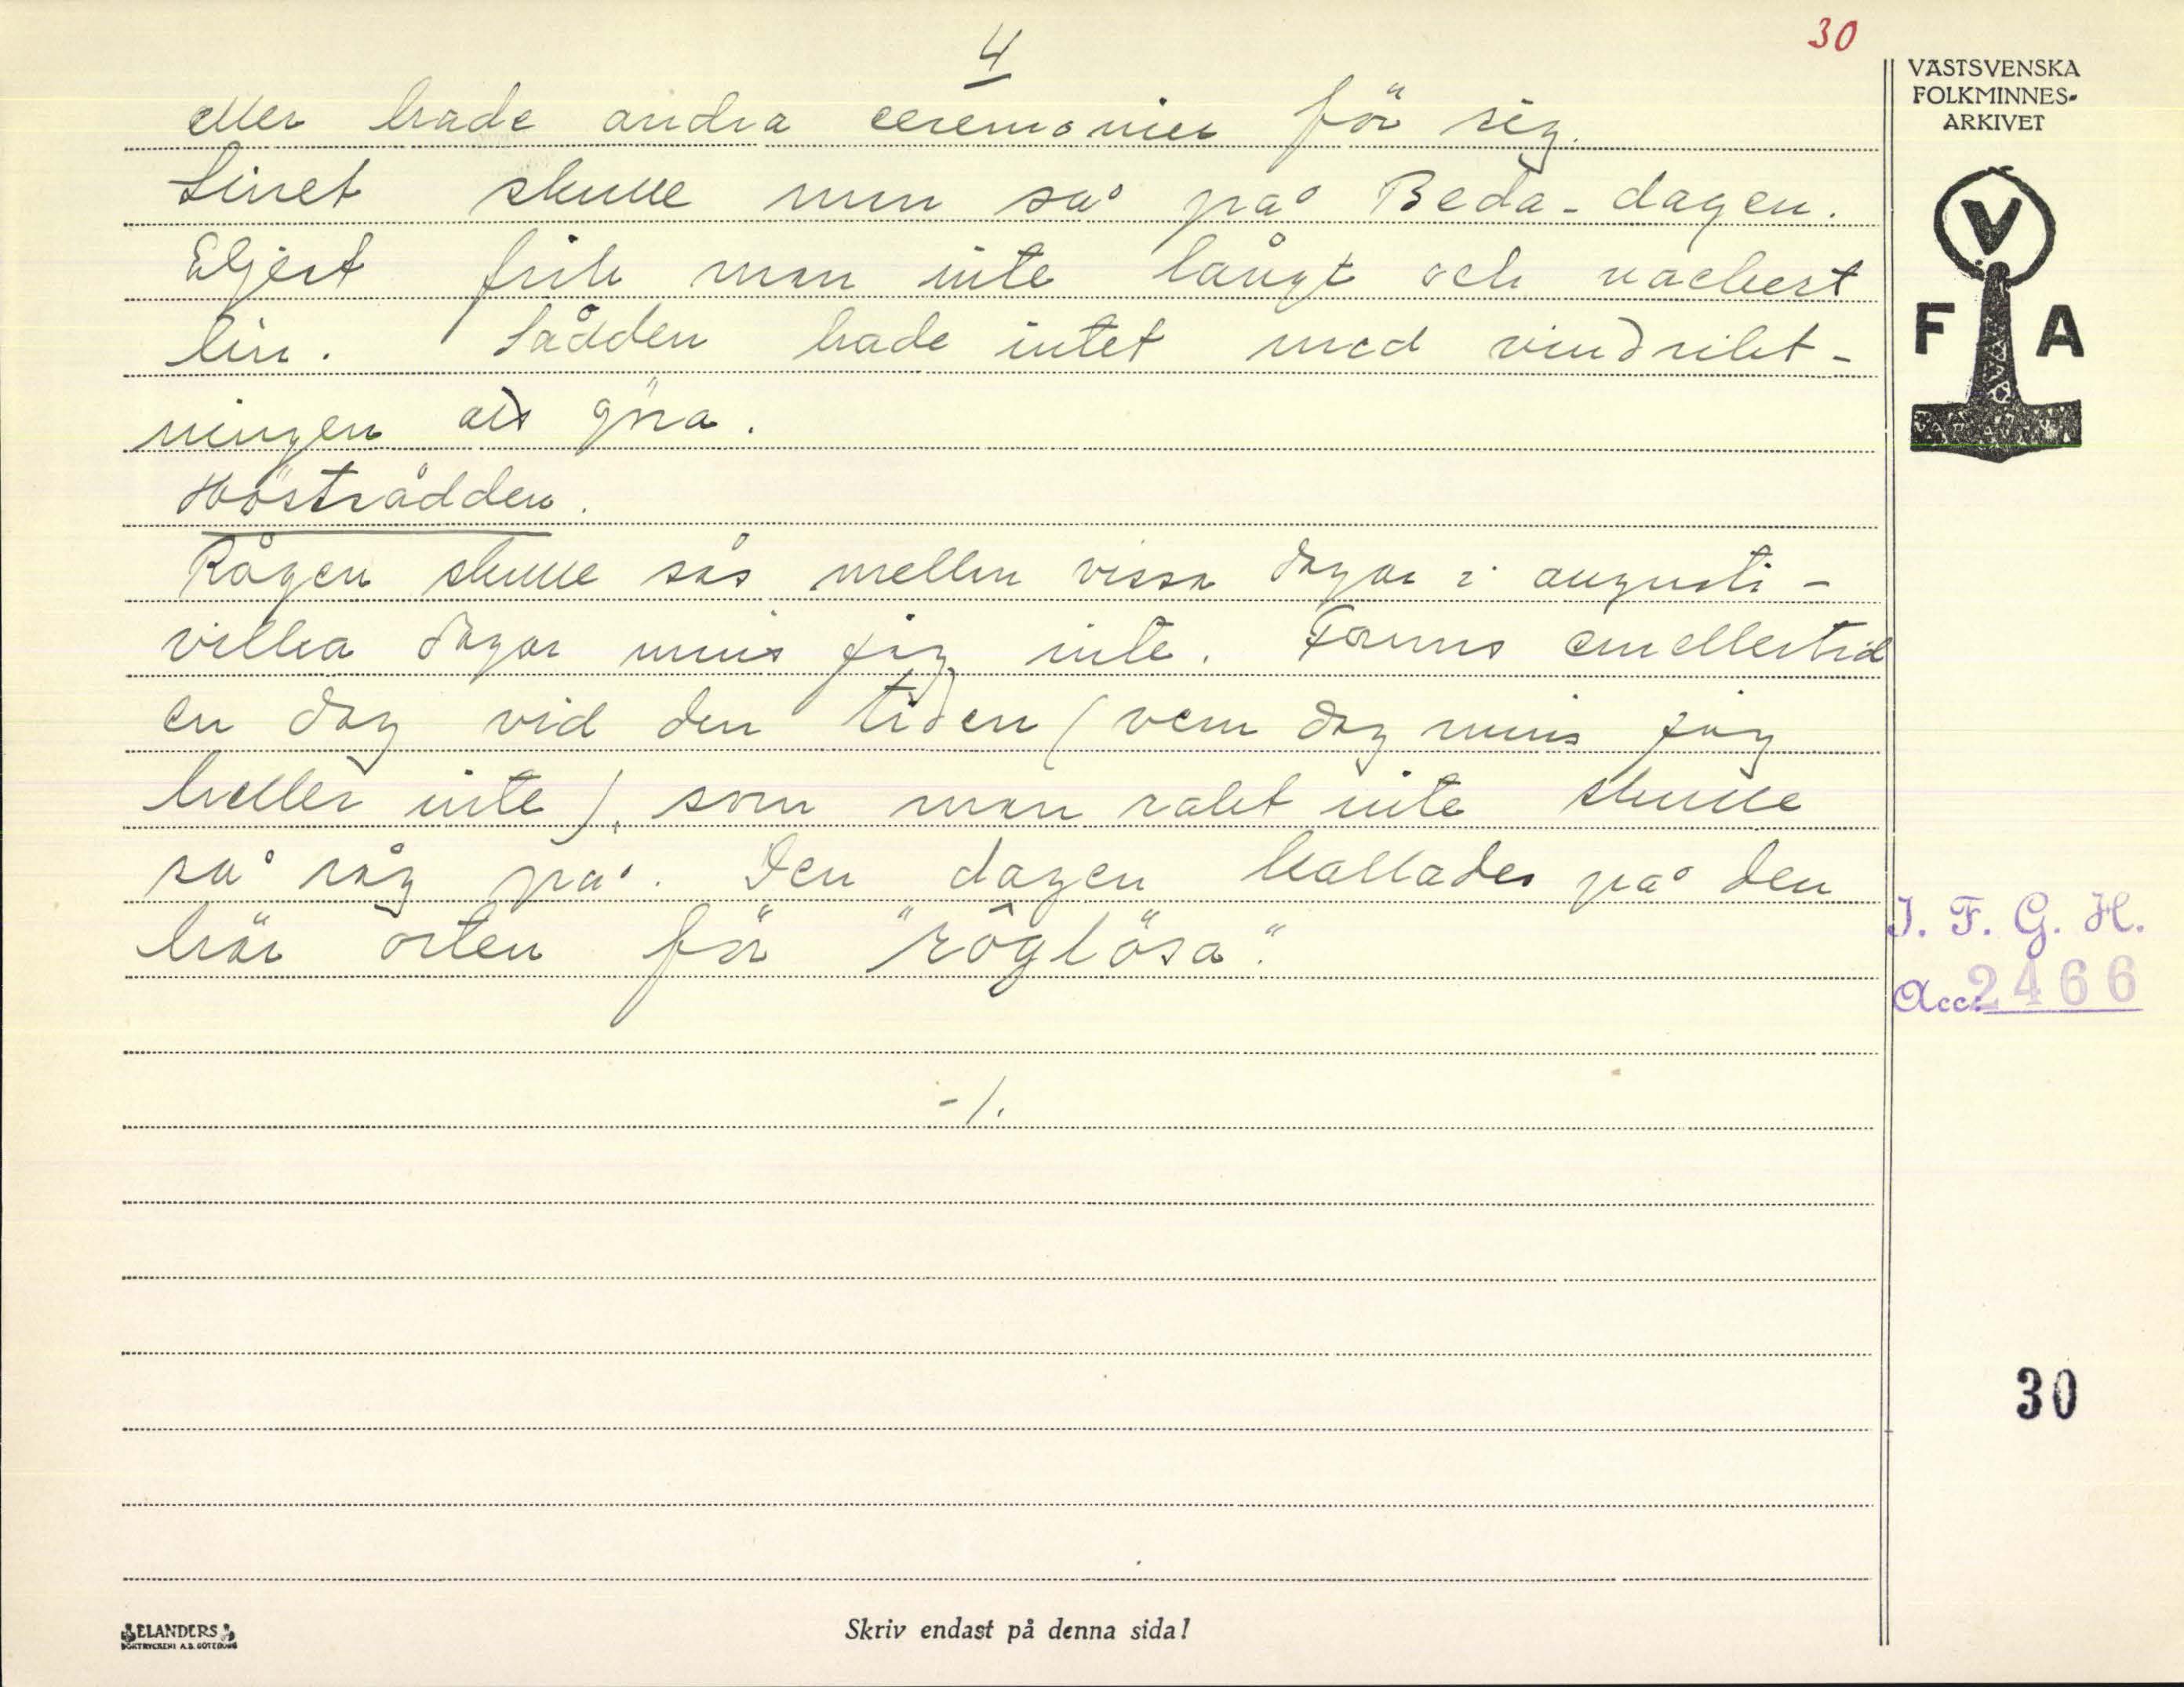 4
30
eller hade andra ceremonier för sig.
Linet skulle man så på Beda-dagen.
Eljest fick man inte långt och vackert
lin. Sådden hade intet med vindrikt-
ningen att göra.
Höstsådden.
Rågen skulle sås mellan vissa dagar i augusti -
vilka dagar minns jag inte. Fanns emellertid
en dag vid den tiden (vem dag minns jag
heller inte), som man rakt inte skulle
så råg på. Den dagen kallades på den
här orten för "rôglösa."
-/.
VÄSTSVENSKA
FOLKMINNES-
ARKIVET
V
F A
I. F. G. H.
Acc. 2466
30
ELANDERS
BOKTRYCKERI A.B. GÖTEBORG
Skriv endast på denna sida!